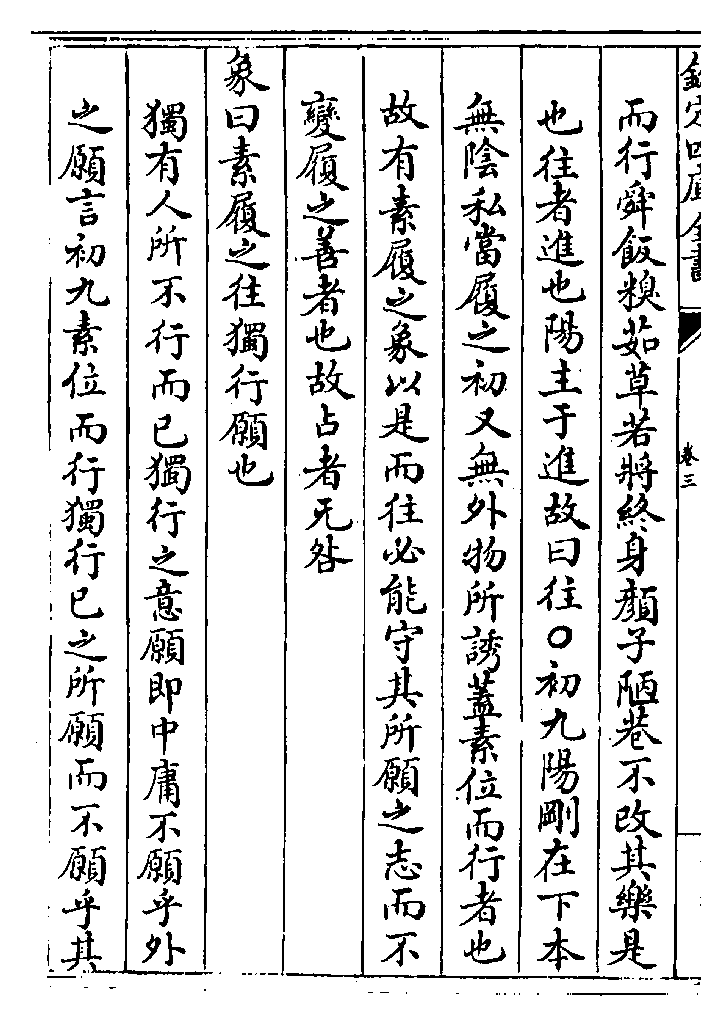 欽定四庫全書
卷三
而行舜飯糗茹草若將終身顏子陋巷不改其樂是
也往者進也陽主于進故曰往○初九陽剛在下本
無陰私當履之初又無外物所誘蓋素位而行者也
故有素履之象以是而往必能守其所願之志而不
變履之善者也故占者无咎
象曰素履之往獨行願也
獨有人所不行而已獨行之意願即中庸不願乎外
之願言初九素位而行獨行已之所願而不願乎其